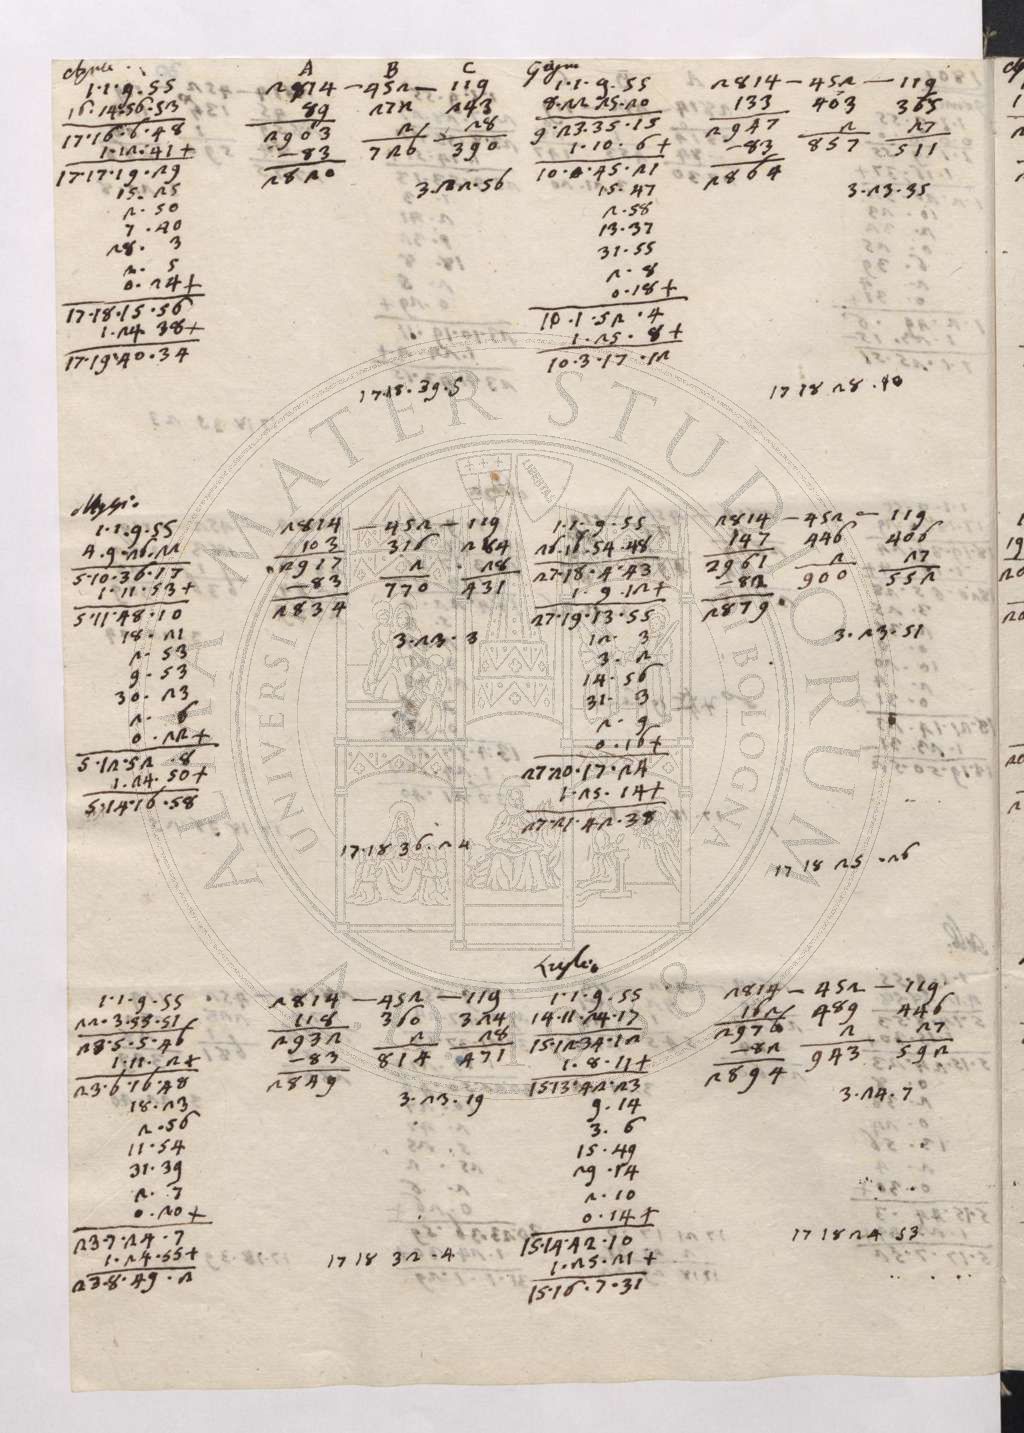 Aprile.
1·1·9·55
16·14·56·53
17·16·6·48
1·12·41+
17·17·19·29
15·25
2·50
7·40
28·3
2·5
0·24+
17·18·15·56
1·24·38+
17·19·40·34
A B C
2814 —452— 119
89 272 243
2903 2 28
—83 726 390
2820
3·22·56
17·18·39·5
1·1·9·55
8·22·25·20
9·23·35·15
1·10·6+
10·0·45·21
15·47
2·58
13·37
31·55
2·8
0·18+
10·1·52·4
1·25·8+
10·3·17·12
2814 —452— 119
133 403 365
2947 2 27
—83 857 511
2864
3·23·35
17 18 28·40
1·1·9·55
4·9·26·22
5·10·36·17
1·11·53+
5·11·48·10
18·21
2·53
9·53
30·23
2·6
0·22+
5·12·52·8
1·24·50+
5·14·16·58
2814 —452— 119
103 316 284
2917 2 28
—83 770 431
2834
3·23·3
17·18 36·24
1·1·9·55
26·16·54·48
27·18·4·43
1·9·12+
27·19·13·55
12·3
3·2
14·56
31·3
2·9
0·16+
27·20·17·24
1·25·14+
27·21·42·38
2814 —452— 119
147 446 406
2961 2 27
—82 900 552
2879
3·23·51
17 18 25·26
1·1·9·55
22·3·55·51
23·5·5·46
1·11·2+
23·6·16·48
18·23
2·56
11·54
31·39
2·7
0·20+
23·7·24·7
1·24·55+
23·8·49·2
2814 —452— 119
118 360 324
2932 2 28
—83 814 471
2849
3·23·19
17 18 32·4
Luglio
1·1·9·55
14·11·24·17
15·12·34·12
1·8·11+
15·13·42·23
9·14
3·6
15·49
29·14
2·10
0·14+
15·14·42·10
1·25·21+
15·16·7·31
2814 —452— 119
162 489 446
2976 2 27
—82 943 592
2894
3·24·7
17 18 24 53